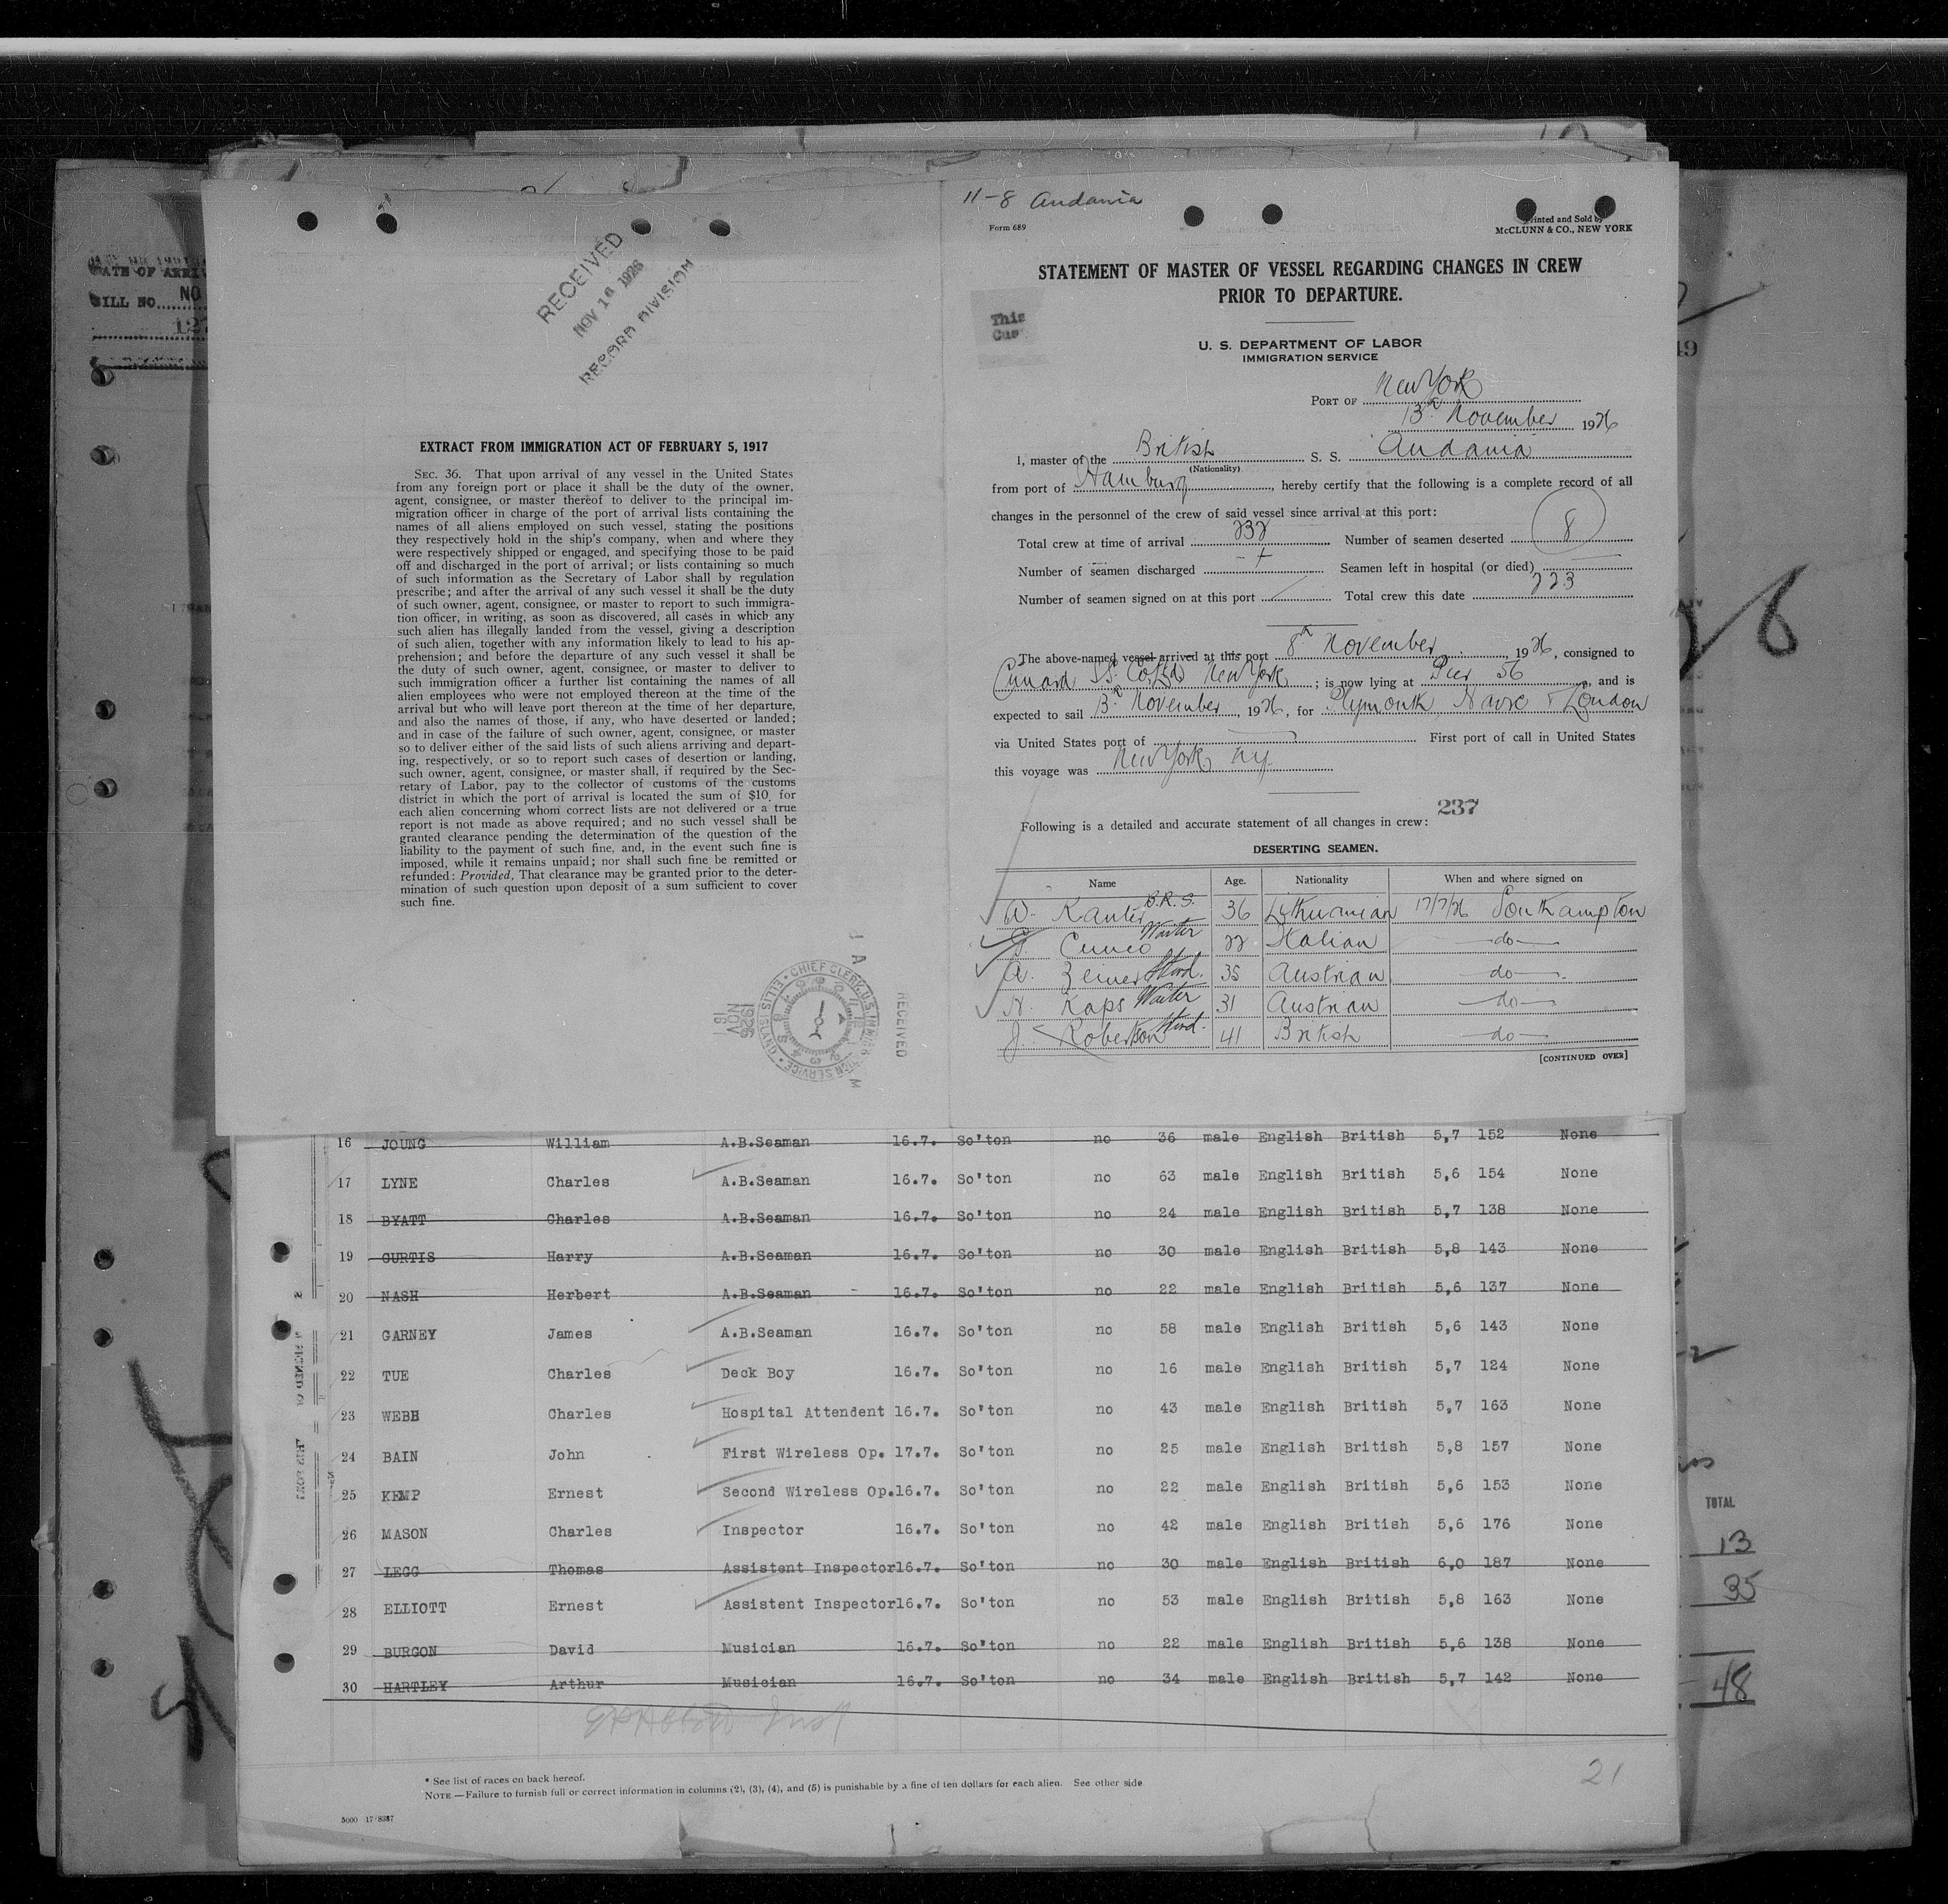 11-8 Andania
Form 689
Printed and Sold by
McCLUNN & CO., NEW YORK
STATEMENT OF MASTER OF VESSEL REGARDING CHANGES IN CREW
PRIOR TO DEPARTURE.
This
Cus
U. S. DEPARTMENT OF LABOR
IMMIGRATION SERVICE
PORT OF New York
13th November 1926
I, master of the British S. S. Andania
(Nationality)
from port of Hamburg, hereby certify that the following is a complete record of all
changes in the personnel of the crew of said vessel since arrival at this port:
Total crew at time of arrival 232 Number of seamen deserted 8
Number of seamen discharged Seamen left in hospital (or died)
Number of seamen signed on at this port Total crew this date 223
The above-named vessel arrived at this port 8th November, 1926, consigned to
Cunard S.S. Co. Ltd New York; is now lying at Pier 56, and is
expected to sail 13th November, 1926, for Plymouth Havre & London
via United States port of First port of call in United States
this voyage was New York Ny.
237
Following is a detailed and accurate statement of all changes in crew:
DESERTING SEAMEN.
Name Age. Nationality When and where signed on
W. Kanter B.R.S. 36 Lithuanian 17/7/26 Southampton
G. Cuneo Waiter 22 Italian do
A. Zeiner Stwd. 35 Austrian do
N. Kaps Waiter 31 Austrian do
J. Robertson Stwd. 41 British do
[CONTINUED OVER]
RECEIVED
NOV 16 1926
RECORD DIVISION
EXTRACT FROM IMMIGRATION ACT OF FEBRUARY 5, 1917
SEC. 36. That upon arrival of any vessel in the United States
from any foreign port or place it shall be the duty of the owner,
agent, consignee, or master thereof to deliver to the principal im-
migration officer in charge of the port of arrival lists containing the
names of all aliens employed on such vessel, stating the positions
they respectively hold in the ship's company, when and where they
were respectively shipped or engaged, and specifying those to be paid
off and discharged in the port of arrival; or lists containing so much
of such information as the Secretary of Labor shall by regulation
prescribe; and after the arrival of any such vessel it shall be the duty
of such owner, agent, consignee, or master to report to such immigra-
tion officer, in writing, as soon as discovered, all cases in which any
such alien has illegally landed from the vessel, giving a description
of such alien, together with any information likely to lead to his ap-
prehension; and before the departure of any such vessel it shall be
the duty of such owner, agent, consignee, or master to deliver to
such immigration officer a further list containing the names of all
alien employees who were not employed thereon at the time of the
arrival but who will leave port thereon at the time of her departure,
and also the names of those, if any, who have deserted or landed;
and in case of the failure of such owner, agent, consignee, or master
so to deliver either of the said lists of such aliens arriving and depart-
ing, respectively, or so to report such cases of desertion or landing,
such owner, agent, consignee, or master shall, if required by the Sec-
retary of Labor, pay to the collector of customs of the customs
district in which the port of arrival is located the sum of $10 for
each alien concerning whom correct lists are not delivered or a true
report is not made as above required; and no such vessel shall be
granted clearance pending the determination of the question of the
liability to the payment of such fine, and, in the event such fine is
imposed, while it remains unpaid; nor shall such fine be remitted or
refunded: Provided, That clearance may be granted prior to the deter-
mination of such question upon deposit of a sum sufficient to cover
such fine.
RECEIVED
1926 NOV 16
CHIEF CLERK, U.S. IMMIGRATION SERVICE ELLIS ISLAND
16 JOUNG William A.B.Seaman 16.7. So'ton no 36 male English British 5,7 152 None
17 LYNE Charles A.B.Seaman 16.7. So'ton no 63 male English British 5,6 154 None
18 BYATT Charles A.B.Seaman 16.7. So'ton no 24 male English British 5,7 138 None
19 CURTIS Harry A.B.Seaman 16.7. So'ton no 30 male English British 5,8 143 None
20 NASH Herbert A.B.Seaman 16.7. So'ton no 22 male English British 5,6 137 None
21 GARNEY James A.B.Seaman 16.7. So'ton no 58 male English British 5,6 143 None
22 TUE Charles Deck Boy 16.7. So'ton no 16 male English British 5,7 124 None
23 WEBB Charles Hospital Attendent 16.7. So'ton no 43 male English British 5,7 163 None
24 BAIN John First Wireless Op. 17.7. So'ton no 25 male English British 5,8 157 None
25 KEMP Ernest Second Wireless Op.16.7. So'ton no 22 male English British 5,6 153 None
26 MASON Charles Inspector 16.7. So'ton no 42 male English British 5,6 176 None
27 LEGG Thomas Assistent Inspector16.7. So'ton no 30 male English British 6,0 187 None
28 ELLIOTT Ernest Assistent Inspector16.7. So'ton no 53 male English British 5,8 163 None
29 BURGON David Musician 16.7. So'ton no 22 male English British 5,6 138 None
30 HARTLEY Arthur Musician 16.7. So'ton no 34 male English British 5,7 142 None
21
* See list of races on back hereof.
NOTE.—Failure to furnish full or correct information in columns (2), (3), (4), and (5) is punishable by a fine of ten dollars for each alien. See other side
TOTAL
13
35
48